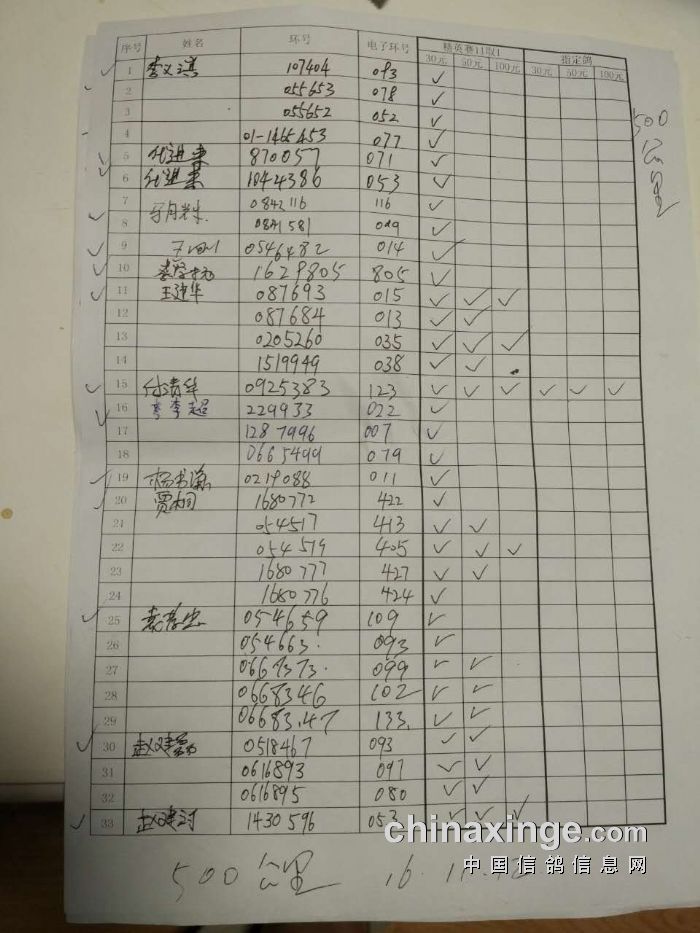 序号 姓名 环号 电子环号 精英赛11取1 指定鸽
30元 50元 100元 30元 50元 100元
1 107404 093 ✓
2 055653 078 ✓
3 055652 052 ✓
4 01-1465453 077 ✓
5 代进来 870057 071 ✓
6 代进来 1044386 053 ✓
7 0842116 116 ✓
8 0841581 ✓
9 0546482 014 ✓
10 1629805 805 ✓
11 王建华 087693 015 ✓ ✓ ✓
12 087684 013 ✓ ✓
13 0205260 035 ✓ ✓ ✓
14 1519949 038 ✓ ✓
15 付清华 0925383 123 ✓ ✓ ✓ ✓ ✓ ✓
16 李超 229933 022 ✓
17 1287996 007 ✓
18 0665499 079 ✓
19 0219088 011 ✓
20 贾相 1680772 422 ✓
21 054517 413 ✓ ✓
22 054519 405 ✓ ✓ ✓
23 1680777 427 ✓ ✓
24 1680776 424 ✓
25 054659 109 ✓
26 054663 093 ✓
27 099 ✓ ✓
28 0668346 102 ✓ ✓
29 0668347 133 ✓ ✓
30 0518467 093 ✓ ✓
31 0616893 097 ✓ ✓
32 0616895 080 ✓ ✓
33 1430596 053 ✓ ✓ ✓
500公里
500公里 16.
chinaxinge.com
中国信鸽信息网